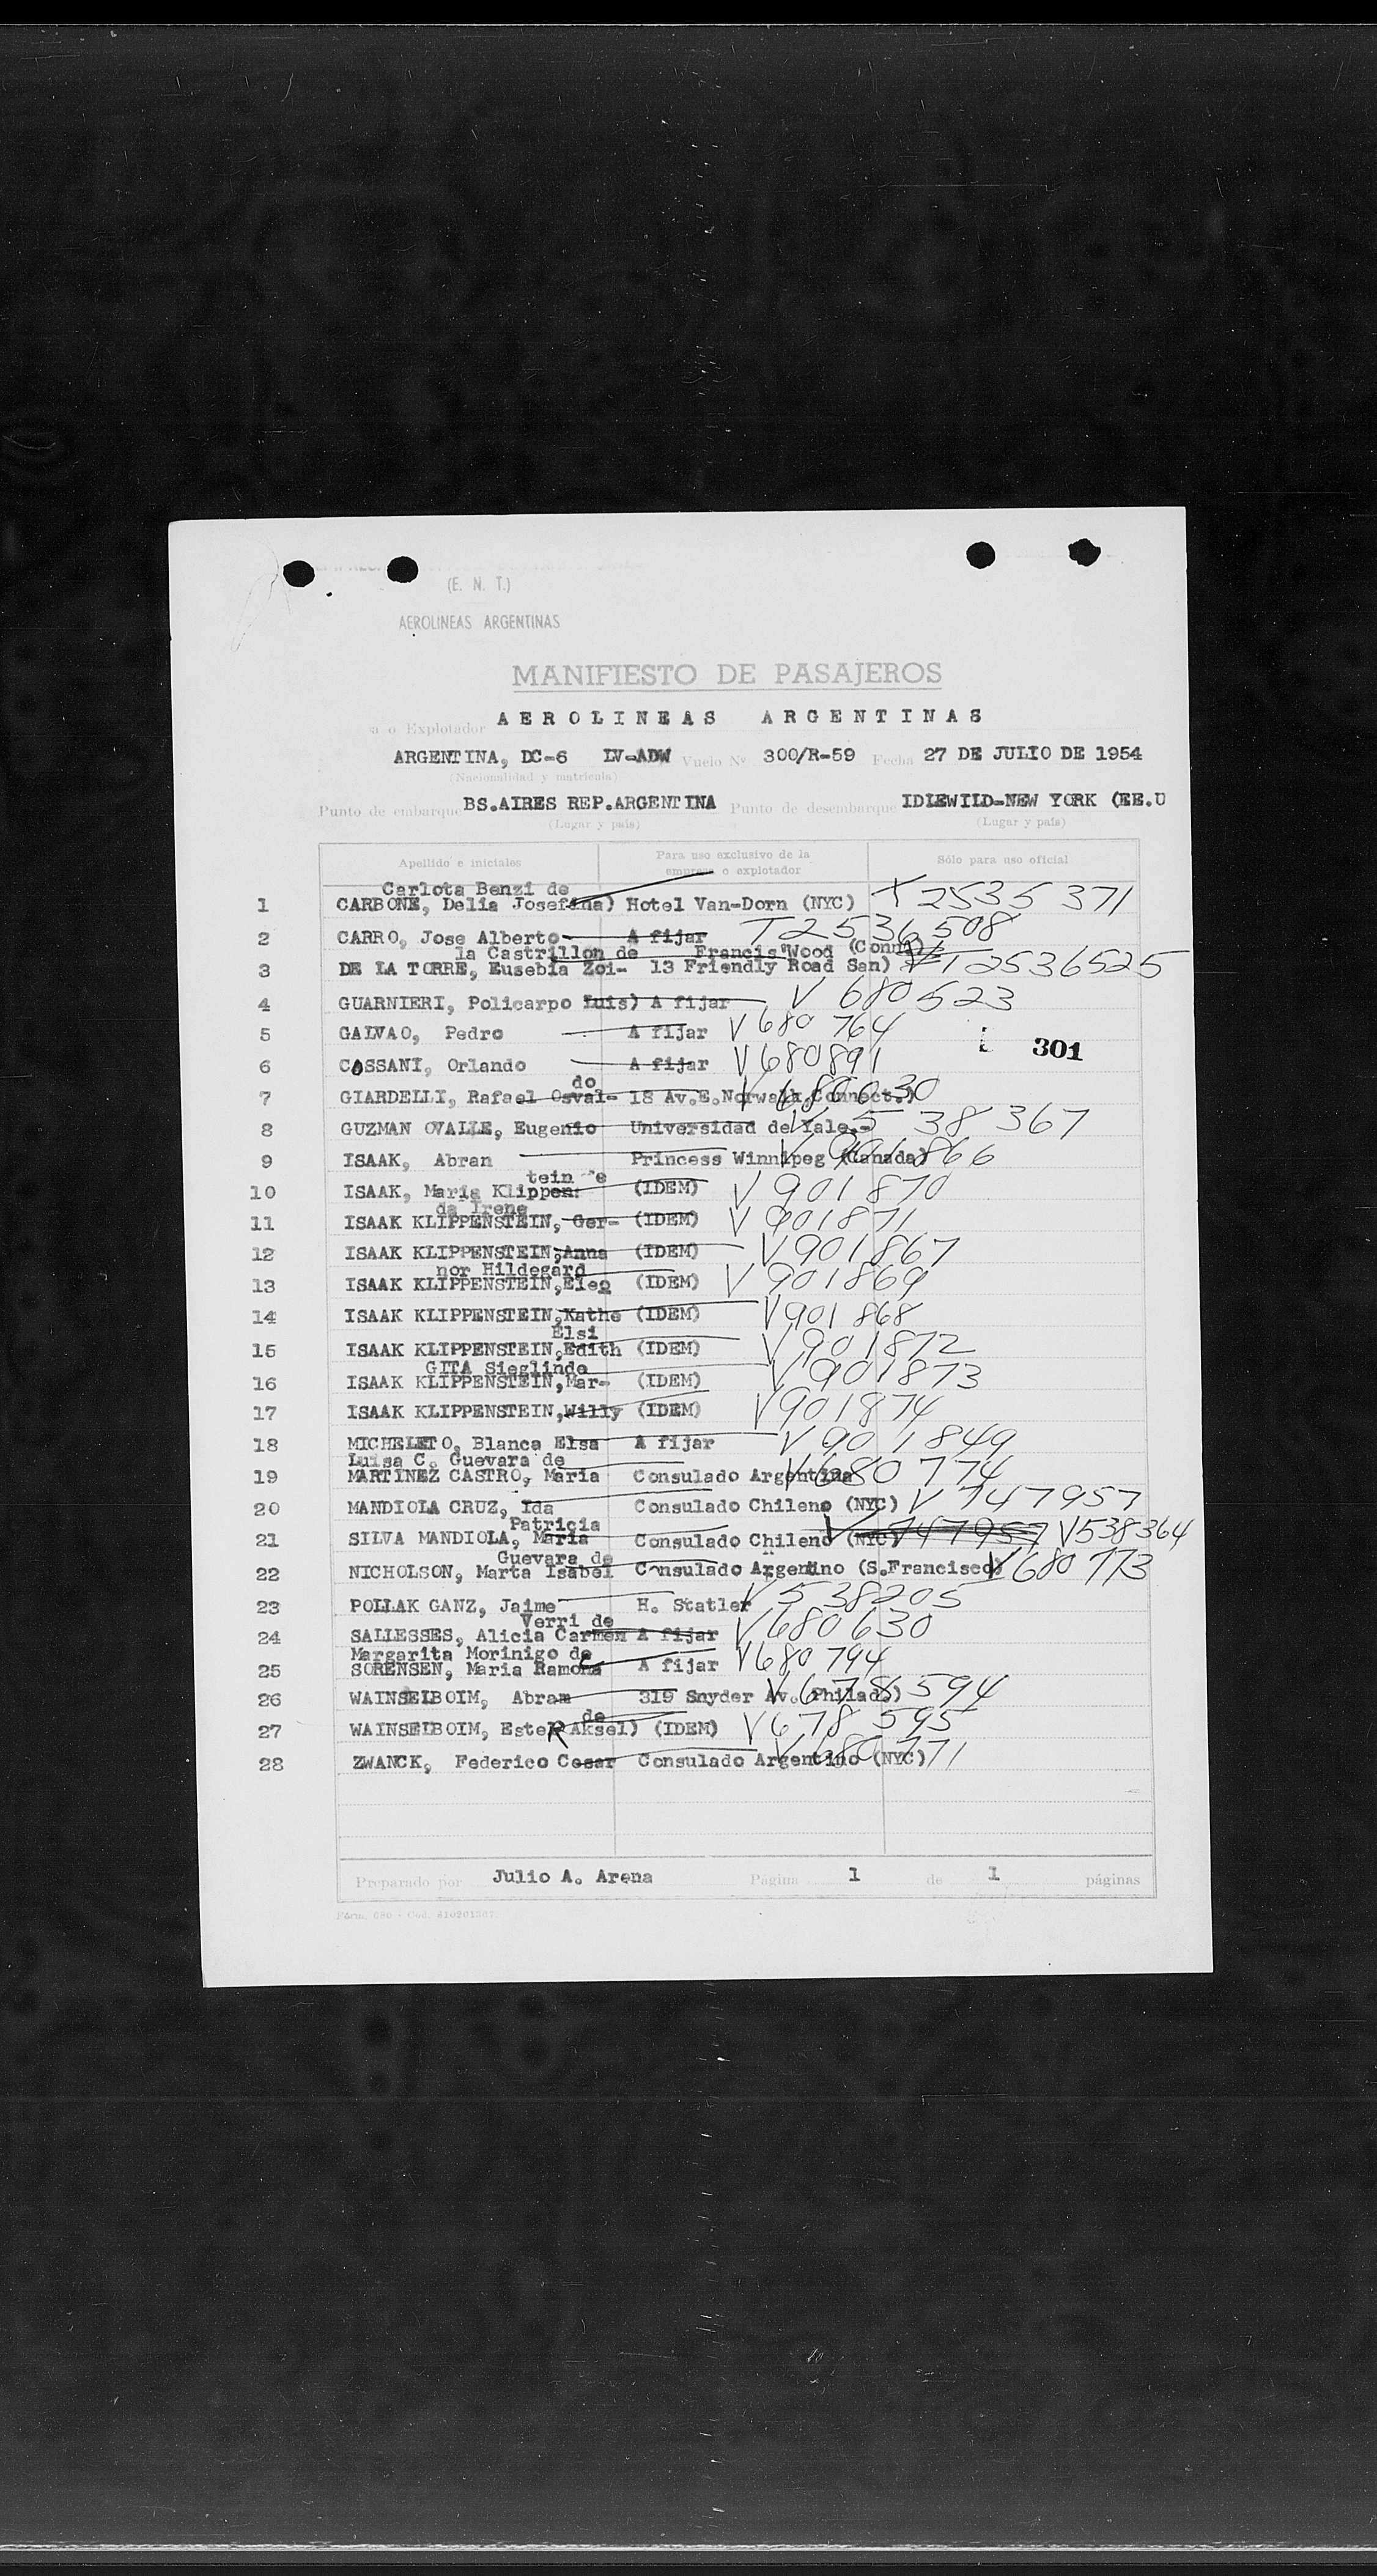 (E. N. T.)
AEROLINEAS ARGENTINAS
MANIFIESTO DE PASAJEROS
a o Explotador AEROLINEAS ARGENTINAS
ARGENTINA, DC-6 LV-ADW Vuelo Nº 300/R-59 Fecha 27 DE JULIO DE 1954
(Nacionalidad y matrícula)
Punto de embarque BS.AIRES REP.ARGENTINA Punto de desembarque IDLEWILD-NEW YORK (EE.U
(Lugar y país) (Lugar y país)
Apellido e iniciales Para uso exclusivo de la empresa o explotador Sólo para uso oficial
Carlota Benzi de
1 CARBONE, Delia Josefina) Hotel Van-Dorn (NYC) T2535371
2 CARRO, Jose Alberto A fijar T2536508
la Castrillon de Francis Wood (Conn.)
3 DE LA TORRE, Eusebia Zoi- 13 Friendly Road San) T2536525
4 GUARNIERI, Policarpo Luis) A fijar V 680523
5 GALVAO, Pedro A fijar V680764
301
6 COSSANI, Orlando A fijar V680891
do
7 GIARDELLI, Rafael Osval- 18 Av.E.Norwalk,Connect.) V
8 GUZMAN OVALLE, Eugenio Universidad de Yale.- V 538367
9 ISAAK, Abran Princess Winnipeg (Canada) V 901866
tein de
10 ISAAK, Maria Klippen: (IDEM) V 901870
da Irene
11 ISAAK KLIPPENSTEIN, Ger- (IDEM) V 901871
12 ISAAK KLIPPENSTEIN,Anna (IDEM) V901867
nor Hildegard
13 ISAAK KLIPPENSTEIN,Eleo (IDEM) V 901869
14 ISAAK KLIPPENSTEIN,Kathe (IDEM) V901868
Elsi
15 ISAAK KLIPPENSTEIN,Edith (IDEM) V901872
GITA Sieglinde
16 ISAAK KLIPPENSTEIN,Mar- (IDEM) V901873
17 ISAAK KLIPPENSTEIN,Willy (IDEM) V901874
18 MICHELETO, Blanca Elsa A fijar V901849
Luisa C. Guevara de
19 MARTINEZ CASTRO, Maria Consulado Argentina V680774
20 MANDIOLA CRUZ, Ida Consulado Chileno (NYC) V 747957
Patricia
21 SILVA MANDIOLA, Maria Consulado Chileno (NYC) V 747957 V538364
Guevara de
22 NICHOLSON, Marta Isabel Consulado Argentino (S.Francisco) V680773
23 POLLAK GANZ, Jaime H. Statler V538205
Verri de
24 SALLESSES, Alicia Carmen A fijar V680630
Margarita Morinigo de
25 SORENSEN, Maria Ramona A fijar V680794
26 WAINSELBOIM, Abram 319 Snyder Av. Philad.) V678594
de
27 WAINSELBOIM, Ester Aksel) (IDEM) V678595
28 ZWANCK, Federico Cesar Consulado Argentino (NYC) V680771
Preparado por Julio A. Arena Página 1 de 1 páginas